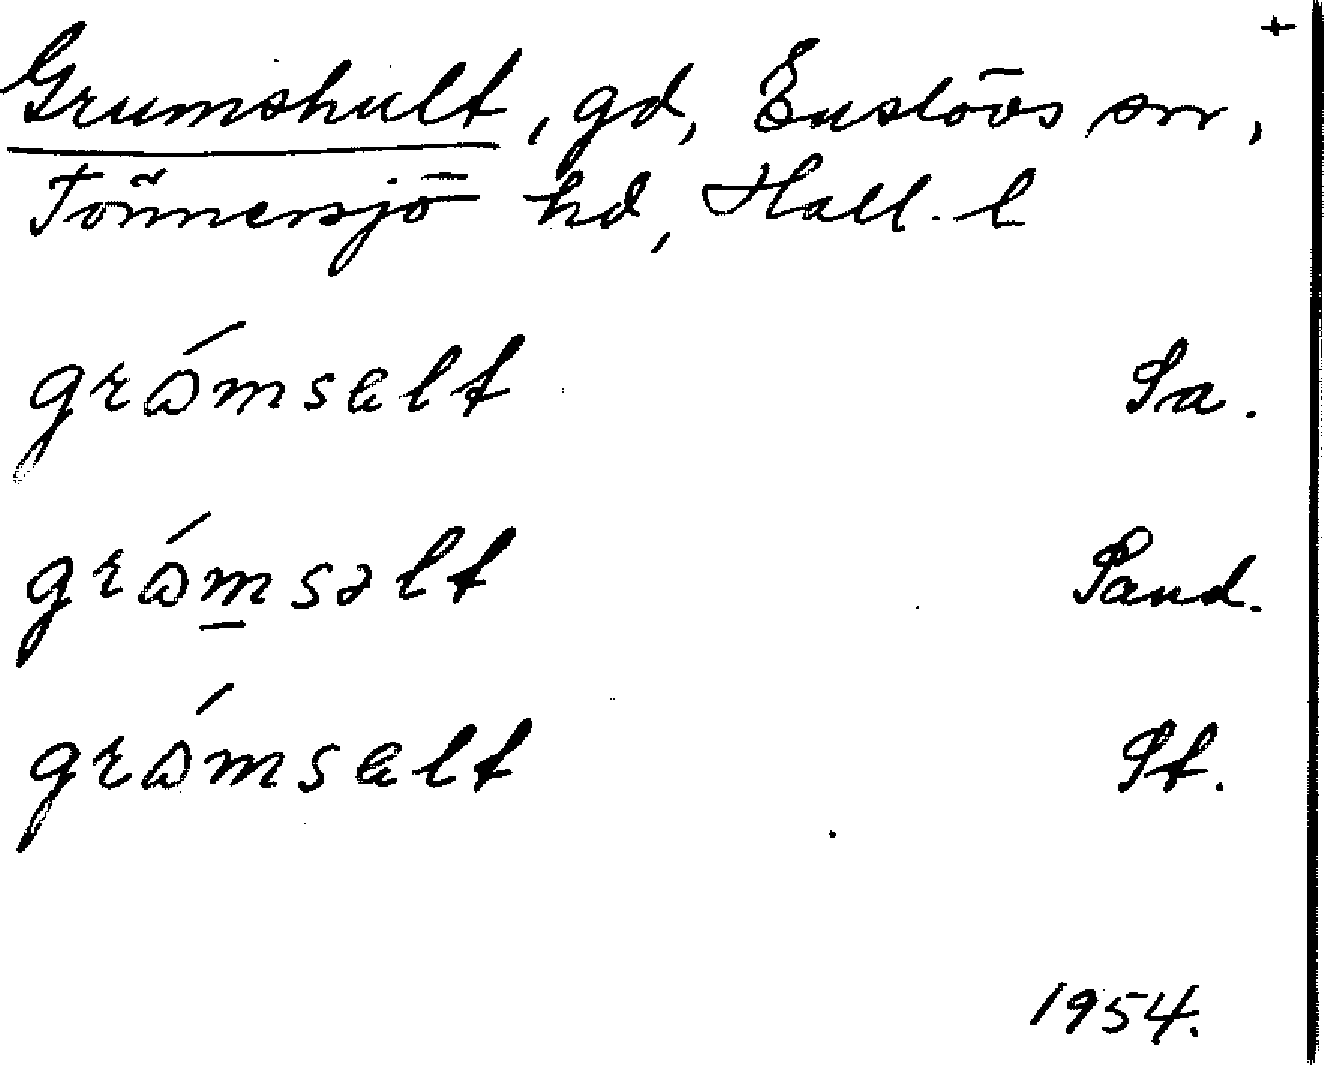 +
Grumshult, gd, Enslövs sn,
Tönnersjö hd, Hall. l
grómsalt Sa.
grómsəlt Sand.
grómsalt St.
1954.